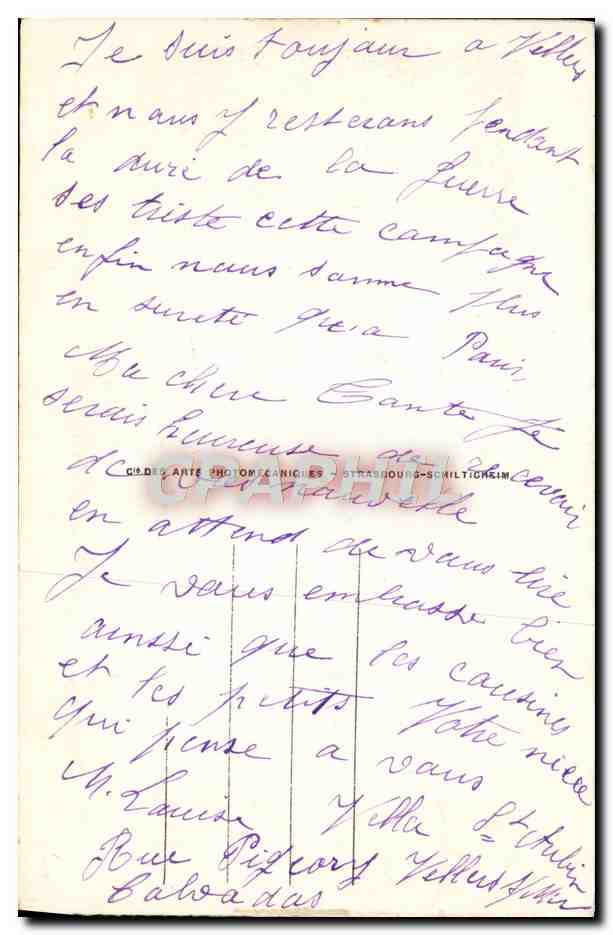 Je suis toujour a Villers
et nous y resterons pendant
la duré de la guerre
ses triste cette campagne
enfin nous somme plus
en sureté qu'a Paris,
Ma chere Tante Je
serais heureuse de recevoir
Cie DES ARTS PHOTOMECANIQUES - STRASBOURG-SCHILTIGHEIM
CPAPHIL
de vos nouvelle
en attend de vous lire
Je vous embrasse bien
ainssi que les cousines
et les petits Votre niece
qui pense a vous
M. Louise Villa St Aubin
Rue Pigeory Villers s/Mer
Calvados